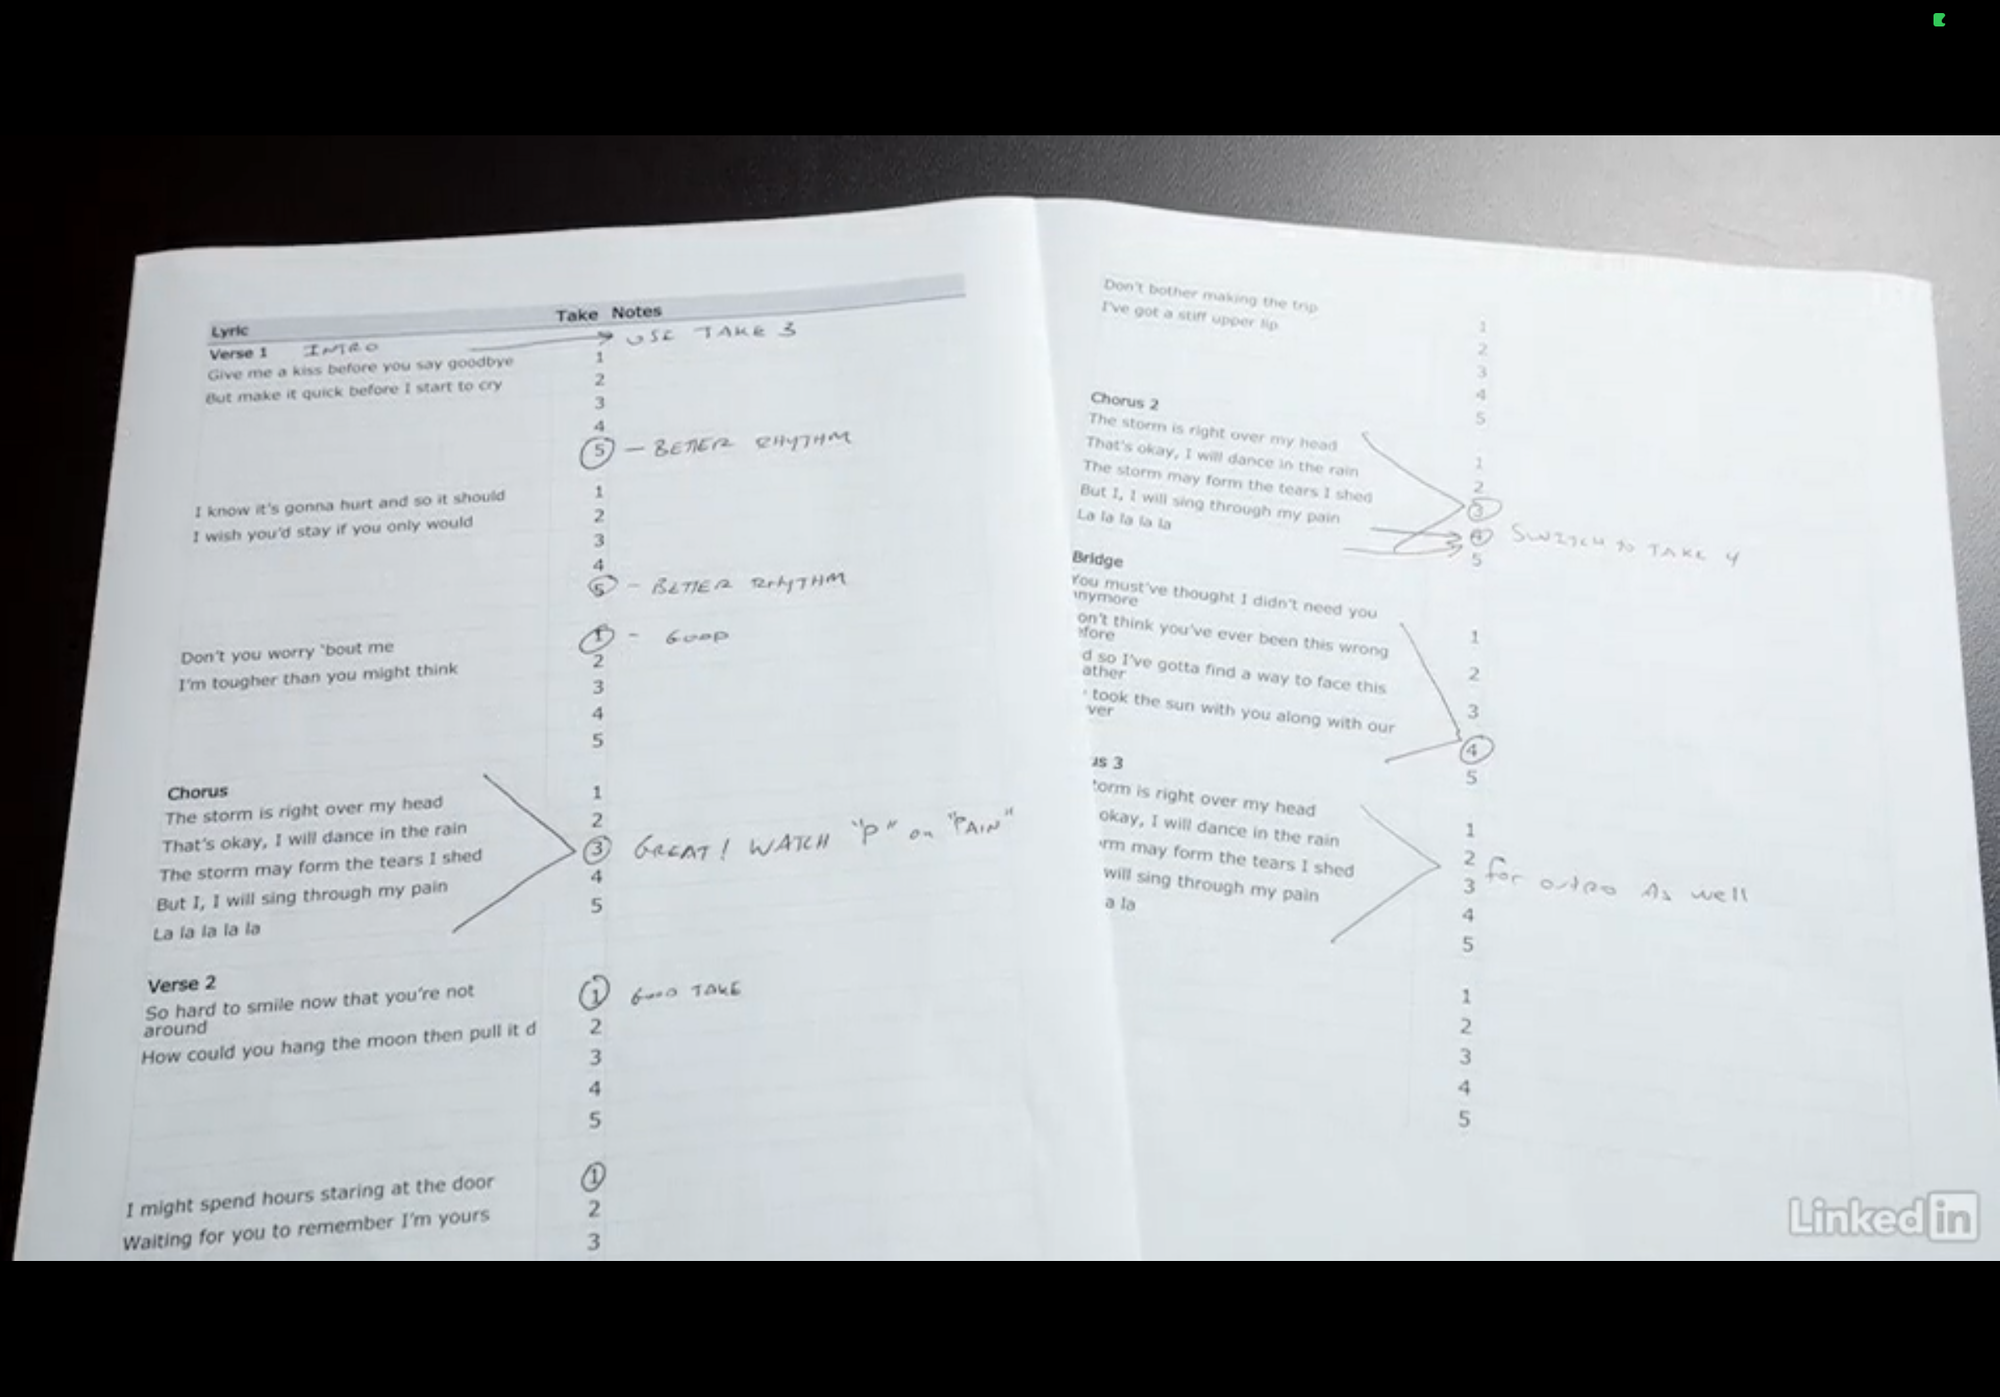 Lyric Take Notes
Verse 1 INTRO USE TAKE 3
Give me a kiss before you say goodbye 1
But make it quick before I start to cry 2
3
4
5 - BETTER RHYTHM
I know it's gonna hurt and so it should 1
I wish you'd stay if you only would 2
3
4
5 - BETTER RHYTHM
Don't you worry 'bout me 1 - GOOD
I'm tougher than you might think 2
3
4
5
Chorus 1
The storm is right over my head 2
That's okay, I will dance in the rain 3 GREAT! WATCH "P" on "PAIN"
The storm may form the tears I shed 4
But I, I will sing through my pain 5
La la la la la
Verse 2
So hard to smile now that you're not 1 GOOD TAKE
around
How could you hang the moon then pull it d 2
3
4
5
I might spend hours staring at the door 1
Waiting for you to remember I'm yours 2
3
Don't bother making the trip 1
I've got a stiff upper lip 2
3
4
5
Chorus 2
The storm is right over my head 1
That's okay, I will dance in the rain 2
The storm may form the tears I shed 3
But I, I will sing through my pain 4 SWITCH to TAKE 4
La la la la la 5
Bridge
You must've thought I didn't need you 1
nymore
on't think you've ever been this wrong 2
fore
d so I've gotta find a way to face this 3
ather
took the sun with you along with our 4
ver
5
us 3
torm is right over my head 1
okay, I will dance in the rain 2 for outro As well
rm may form the tears I shed 3
will sing through my pain 4
a la 5
1
2
3
4
5
LinkedIn